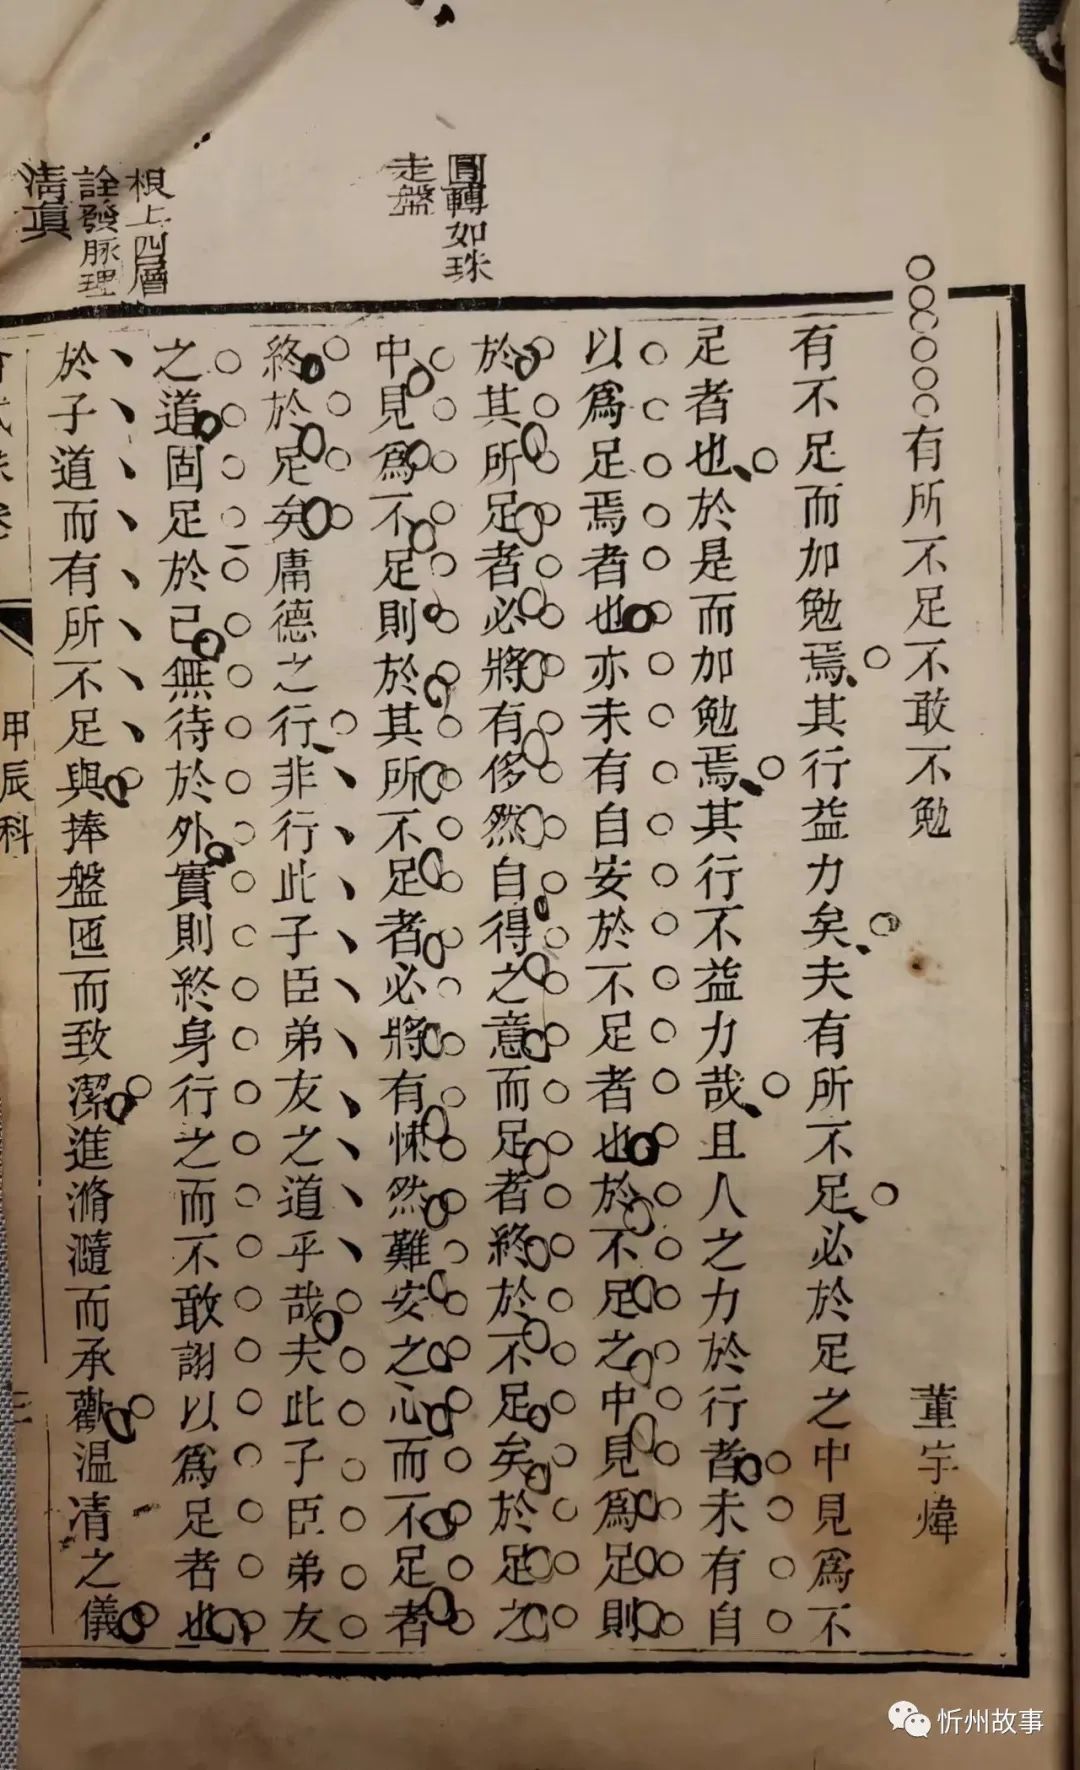 圓轉如珠
走盤
根上四層
詮發脈理
清真
有所不足不敢不勉
董宇煒
有不足而加勉焉其行益力矣夫有所不足必於足之中見為不
足者也於是而加勉焉其行不益力哉且人之力於行者未有自
以為足焉者也亦未有自安於不足者也於不足之中見為足則
於其所足者必將有侈然自得之意而足者終於不足矣於足之
中見為不足則於其所不足者必將有悚然難安之心而不足者
終於足矣庸德之行非行此子臣弟友之道乎哉夫此子臣弟友
之道固足於己無待於外實則終身行之而不敢謝以為足者也
於子道而有所不足與捧盤匜而致潔進滫瀡而承歡溫凊之儀
甲辰科
忻州故事